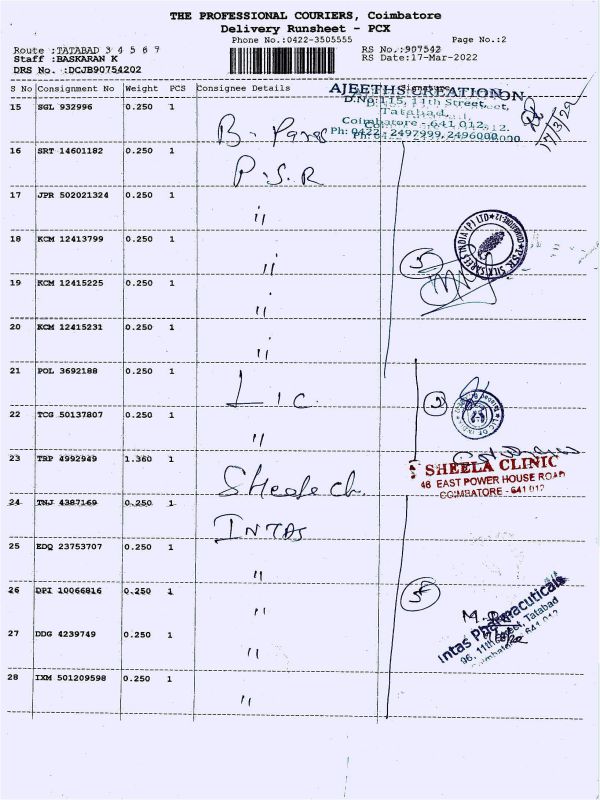 THE PROFESSIONAL COURIERS, Coimbatore
Delivery Runsheet - PCX
Phone No.:0422-3505555 Page No.:2
Route :TATABAD 3 4 5 6 7 RS No.:907542
Staff :BASKARAN K RS Date:17-Mar-2022
DRS No. :DCJB90754202
S No Consignment No Weight PCS Consignee Details Signature
AJEETHS CREATION
D.No:115, 11th Street,
Tatabad,
Coimbatore - 641 012.
Ph: 0422 - 2497999, 2496000
17/3/22
15 SGL 932996 0.250 1 B.
16 SRT 14601182 0.250 1 P.S.R
17 JPR 502021324 0.250 1 "
18 KCM 12413799 0.250 1 "
5
PSR SILK SAREES INDIA (P) LTD COIMBATORE-12
19 KCM 12415225 0.250 1 "
20 KCM 12415231 0.250 1 "
21 POL 3692188 0.250 1 LIC
2
LIC OF INDIA
22 TCG 50137807 0.250 1 "
23 TRP 4992949 1.360 1
SHEELA CLINIC
46 EAST POWER HOUSE ROAD
COIMBATORE - 641 012
24 TNJ 4387169 0.250 1 INTAS
25 EDQ 23753707 0.250 1 "
26 DPI 10066816 0.250 1 "
5
Intas Pharmacuticals
96, 11th Street, Tatabad
Coimbatore - 641 012
27 DDG 4239749 0.250 1 "
28 IXM 501209598 0.250 1 "